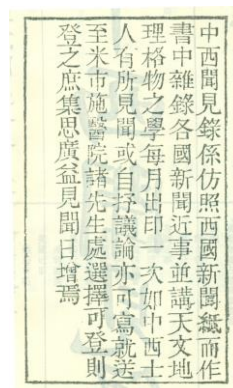 中西聞見錄係仿照西國新聞紙而作
書中雜錄各國新聞近事並講天文地
理格物之學每月出印一次如中西士
人有所見聞或自抒議論亦可寫就送
至米市施醫院諸先生處選擇可登則
登之庶集思廣益見聞日增焉